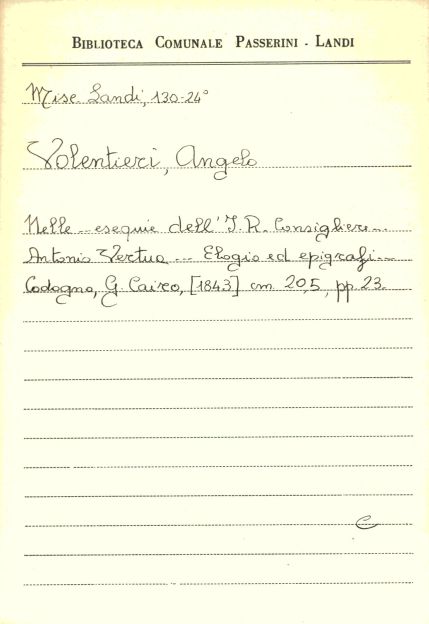 BIBLIOTECA COMUNALE PASSERINI - LANDI
Misc. Landi, 130-24°
Volentieri, Angelo
Nelle ... esequie dell' I. R. Consigliere...
Antonio Vertua ... Elogio ed epigrafi...
Codogno, G. Cairo, [1843] cm 20,5, pp 23.
e